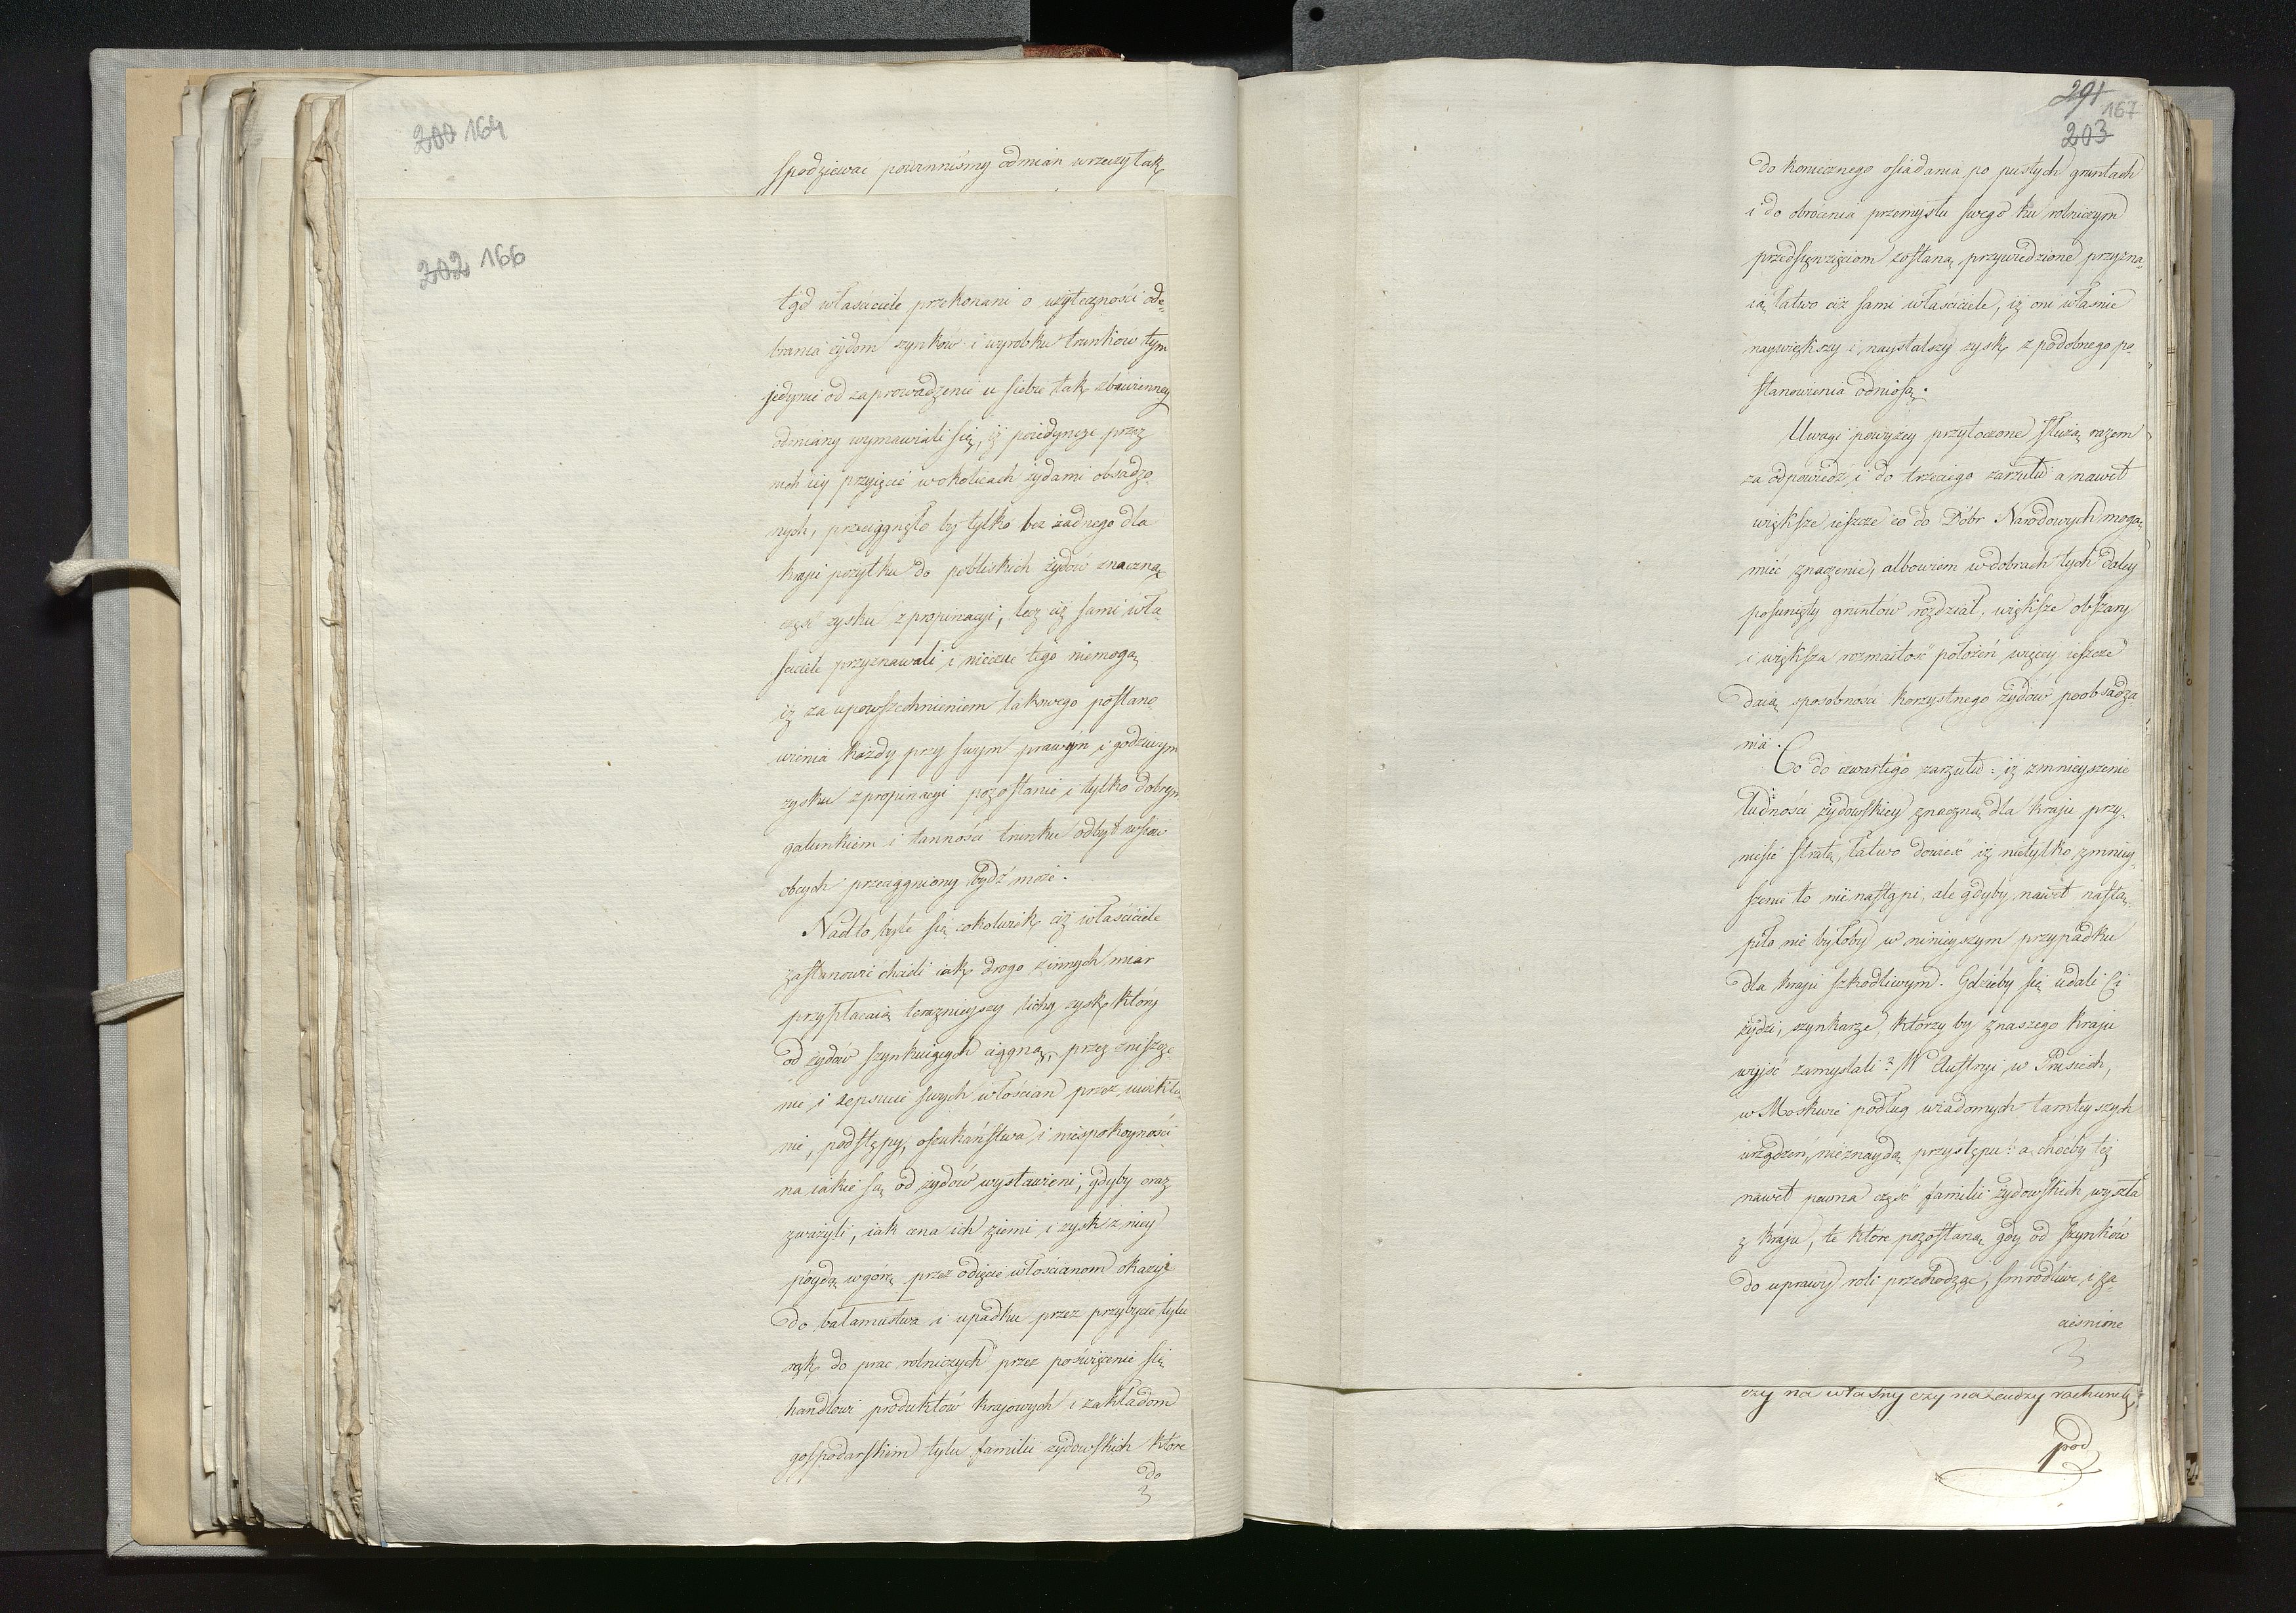 200 164
spodziewać powinniśmy odmian w rzeczy tak
202 166
tąd właściciele przekonani o użyteczności ode„
brania żydom szynków i wyrobku trunków tym
jedynie od zaprowadzenie u siebie tak zbawienney
odmiany wymawiali się, iż poiedyncze przez
nich iey przyięcie w okolicach żydami obsadzo
nych, przeciągnęło by tylko bez żadnego dla
kraju pożytku do pobliskich żydów znaczną
część zysku z propinacyi, lecz ciż sami wła
ściciele przyznawali i nieczuć tego niemogą
iż za upowszechnieniem takowego postano
wienia każdy przy swym prawym i godziwym
zysku z propinacyi pozostanie i tylko dobrym
gatunkiem i tanności trunku odbyt
obcych przeciągniony bydź może.
Nadto byle się cokolwiek ciż właściciele
zastanowić chcieli iak drogo z innych miar
przypłacaią teraznieyszy lichy zysk, który
od żydów szynkuiących ciągną, przez zniszcze„
nie i zepsucie swych włościan przez uwikła„
nie, podstępy, oszukaństwa i niespokoyności
na iakie są od żydów wystawieni, gdyby oraz
zważyli, iak cena ich ziemi i zysk z niey
póydą w górę przez odięcie włościanom okazyi
do bałamustwa i upadku przez przybycie tylu
rąk do prac rolniczych przez poświęcenie się
handlowi produktów krajowych i zakładom
gospodarskim tylu familii żydowskich które
do
291
167
203
do koniecznego osiadania po pustych gruntach
i do obrócenia przemysłu swego ku rolniczym
przedsięwzięciom zostaną przywiedzione przyzna„
ią łatwo ciż sami właściciele, iż oni właśnie
naywiększy i naystalszy zysk z podobnego po
stanowienia odniosą.
Uwagi powyżey przytoczone służą razem
za odpowiedź i do trzeciego zarzutu a nawet
większe ieszcze co do Dóbr Narodowych mogą
mieć znaczenie, albowiem w dobrach tych daley
posunięty gruntów rozdział, większe obszary
i większa rozmaitość położeń więcey ieszcze
daią sposobności korzystnego żydów poobsadza
nia.
Co do czwartego zarzutu: iż zmnieyszenie
ludności żydowskiey znaczną dla kraju przy„
niesie stratę, łatwo dowieść iż nietylko zmniey„
szenie to nie nastąpi, ale gdyby nawet nastą„
piło nie byłoby w ninieyszym przypadku
dla kraju szkodliwym. Gdzieby się udali Ci
żydzi, szynkarze, którzy by z naszego kraju
wyjść zamyślali? W Austryi, w Prusiech,
w Moskwie podług wiadomych tamteyszych
urządzeń, nieznaydą przystępu: a choćby też
nawet pewna część familii żydowskich wyszła
z kraju, te które pozostaną gdy od szynków
do uprawy roli przechodząc, smrodliwe i za„
cieśnione
czy na własny czy na cudzy rachunek,
pod